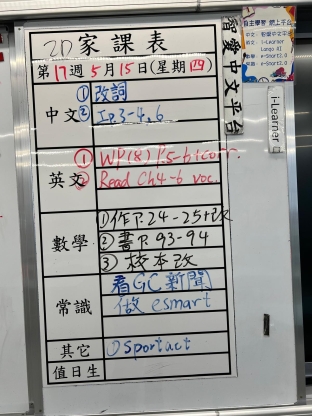 2D 家課表
第17週 5月15日(星期四)
中文
①改詞
② 工P.3-4, 6
英文
① WP(8) P.5-6+corr.
② Read Ch4-6 voc.
數學
①作P.24-25+改
②書P.93-94
③校本改
常識
看GC新聞
做 esmart
其它
① Sportact
值日生
智愛中文平台
自主學習 網上平台
i-Learner